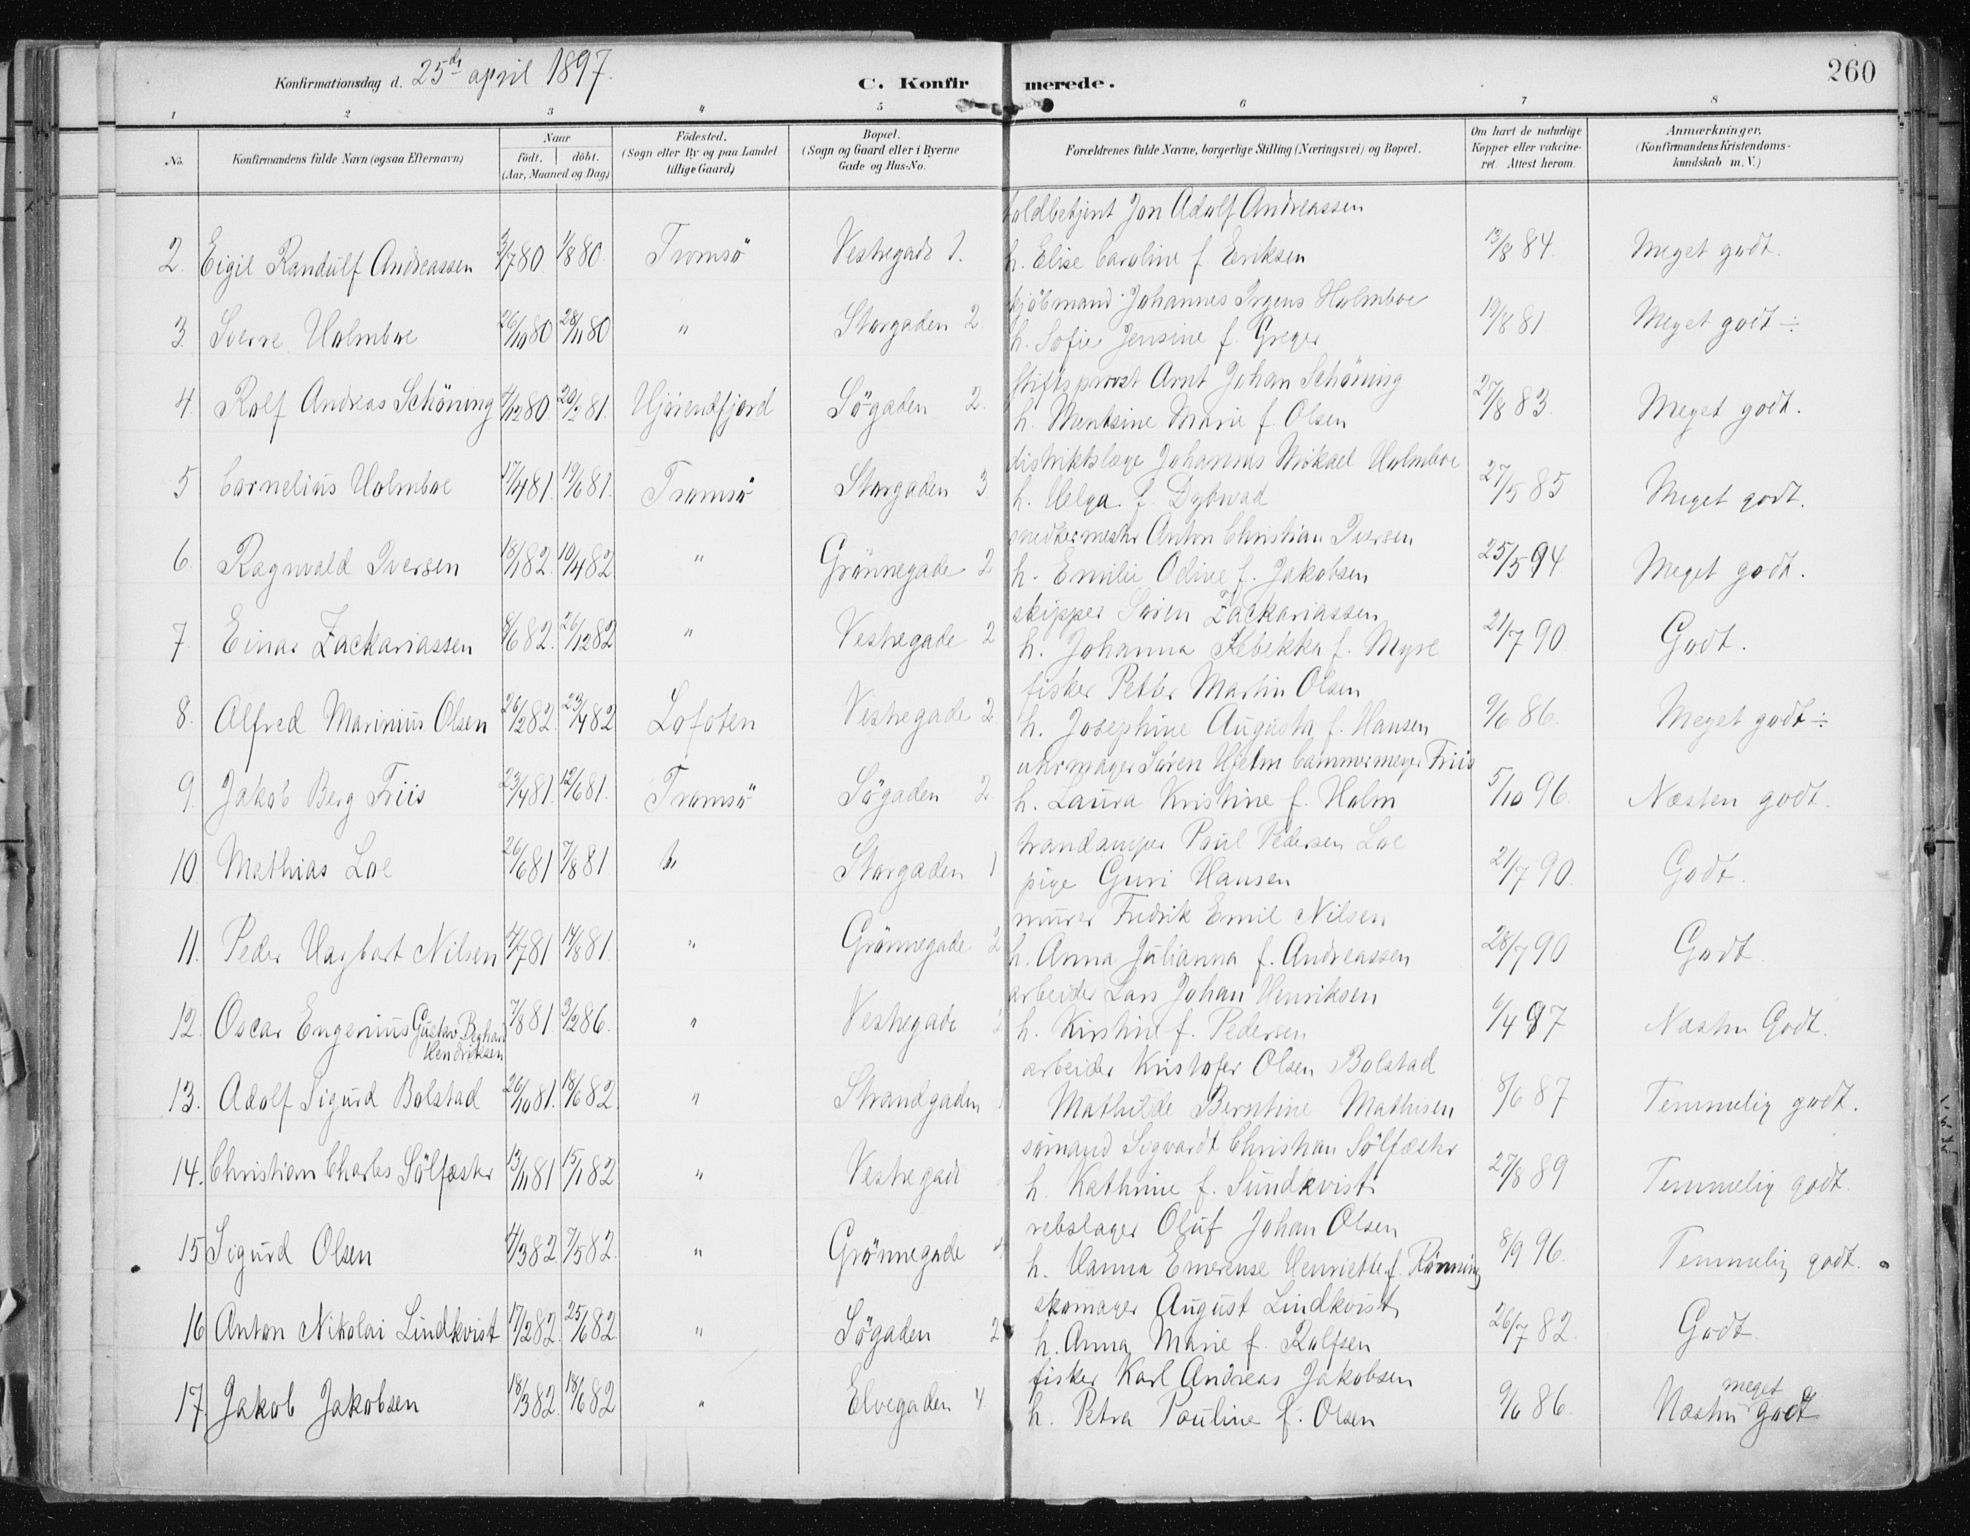 Konfirmationsdag d. 25de april 1897.
C. Konfirmerede.
260
1 2 3 " 5 6 7 8
No. Konfirmandens fulde Navn (ogsaa Efternavn) Naar født. døbt. (Aar, Maaned og Dag) Fødested. (Sogn eller By og paa Landet tillige Gaard) Bopæl. (Sogn og Gaard eller i Byerne Gade og Hus-No. Forældrenes fulde Navne, borgerlige Stilling (Næringsvei) og Bopæl. Om havt de naturlige Kopper eller vaccineret. Attest herom. Anmærkninger. (Konfirmandens Kristendomskundskab m. V.)
toldbetjent Jon Adolf Andreassen
2. Eigil Randulf Andreassen /7 80 1/8 80 Tromsö Vestregade 1. h. Elise Caroline f. Eriksen 13/8 84. Meget godt.
kjöbmand Johannes Irgens Holmboe
3. Sverre Holmboe 26/10 80 28/11 80 " Storgaden 2. h. Sofie Jensine f. Greger 19/8 81 Meget godt ÷
stiftsprovst Arnt Johan Schöning
4. Rolf Andreas Schöning /12 80 20/2 81. Hjörendfjord Sögaden 2. h. Marie f. Olsen 27/8 83. Meget godt.
distriktslæge Johannes Mikael Holmboe
5 Cornelius Holmboe 17/4 81. 19/6 81. Tromsö Storgaden 3. h. Helga f. Dybwad 27/5 85 Meget godt.
snedkermester Anton Christian Iversen
6. Ragnvald Iversen 18/1 82. 10/4 82 " Grönnegade 2 h. Emilie Odine f. Jakobsen 25/5 94 Meget godt.
skipper Sören Zackariassen
7. Einar Zackariassen 8/6 82. 26/12 82 " Vestregade 2 h. Johanna Rebekka f. Myre 21/7 90. Godt.
fisker Petter Martin Olsen
8. Alfred Marinius Olsen 26/2 82. 23/4 82 Lofoten Vestregade 2. h. Josephine Augusta f. Hansen 9/6 86. Meget godt ÷
uhrmager Sören Hjelm Cammermeyer Friis
9. Jakob Berg Friis 23/4 81. 12/6 81. Tromsö Sögaden 2. h. Laura Kristine f. Holm 5/10 96. Næsten godt.
Paul Pedersen Loe
10. Mathias Loe 26/6 81 7/8 81. Storgaden 1 pige Guri Hansen 21/7 90. Godt.
murer Fredrik Emil Nilsen
11. Peder Hagbart Nilsen 4/7 81 14/8 81. " Grönnegade 2 h. Anna Julianna f. Andreassen 28/7 90 Godt.
arbeider Lars Johan Henriksen
12. Oscar Engenius Gustav Hendriksen 7/8 81. 3/2 86. " Vestregade h. Kirstine f. Pedersen 6/4 97 Næsten Godt.
arbeider Kristofer Olsen Bolstad
13. Adolf Sigurd Bolstad 26/10 81. 18/6 82 " Strandgaden Mathilde Berntine Mathisen 8/6 87 Temmelig godt.
sömand Sigvardt Christian Sölfæster
14. Christian Charles Sölfæster 13/11 81 15/1 82 " Vestregade h. Kathrine f. Sundkvist 27/8 89 Temmelig godt.
rebslager Oluf Johan Olsen
15 Sigurd Olsen /3 82 7/5 82. " Grönnegade h. Hanna Emerense Henriette f. Rönning 8/9 96. Temmelig godt.
skomager August Lindkvist
16 Anton Nikolai Lindkvist 17/2 82. 25/6 82. " Sögaden 2 h. Anna Marie f. Rolfsen 26/7 82. Godt.
fisker Karl Andreas Jakobsen
17. Jakob Jakobsen 18/3 82. 18/6 82 " Elvegaden 4. h. Petra Pauline f. Olsen 9/6 86. Næsten meget godt